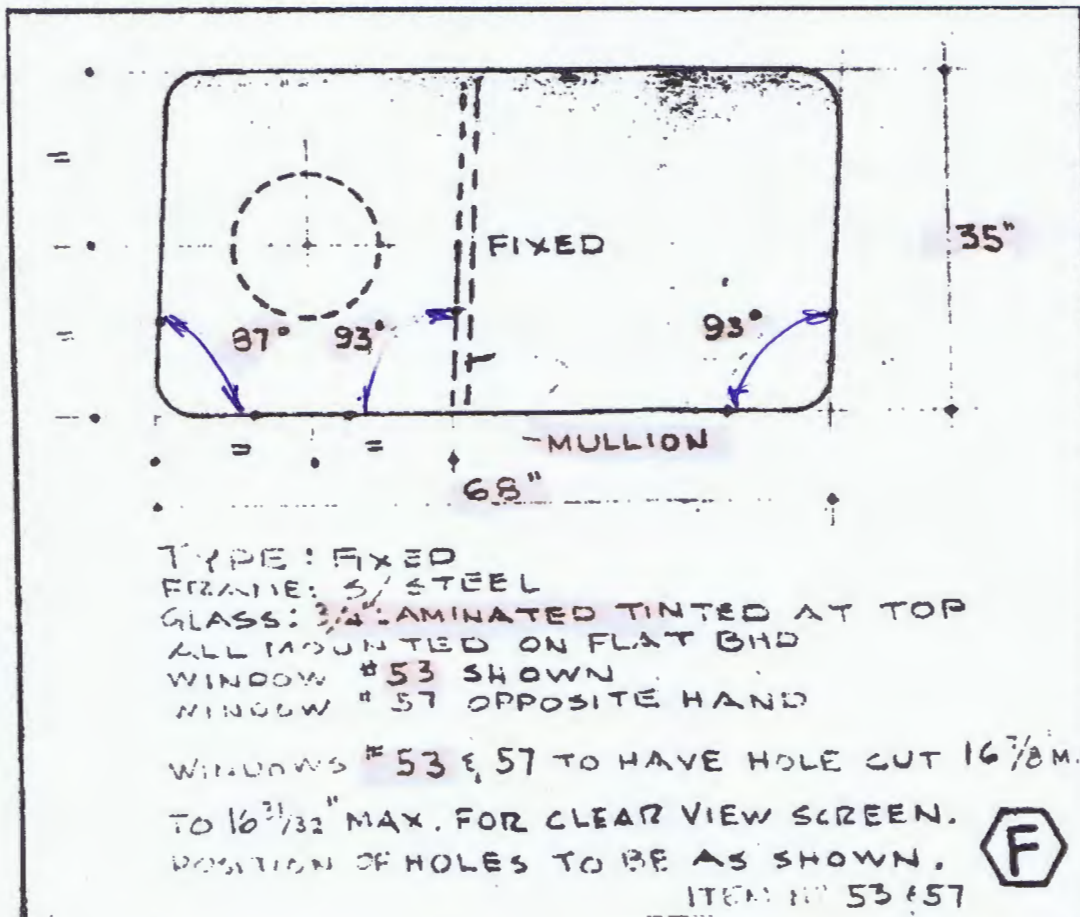 FIXED
35"
87° 93°
93°
MULLION
68"
TYPE: FIXED
FRAME: S/STEEL
GLASS: 3/4" LAMINATED TINTED AT TOP
ALL MOUNTED ON FLAT BHD
WINDOW #53 SHOWN
WINDOW #57 OPPOSITE HAND
WINDOWS #53 & 57 TO HAVE HOLE CUT 16 7/8 M.
TO MAX. FOR CLEAR VIEW SCREEN.
POSITION OF HOLES TO BE AS SHOWN.
F
ITEM Nº 53 & 57